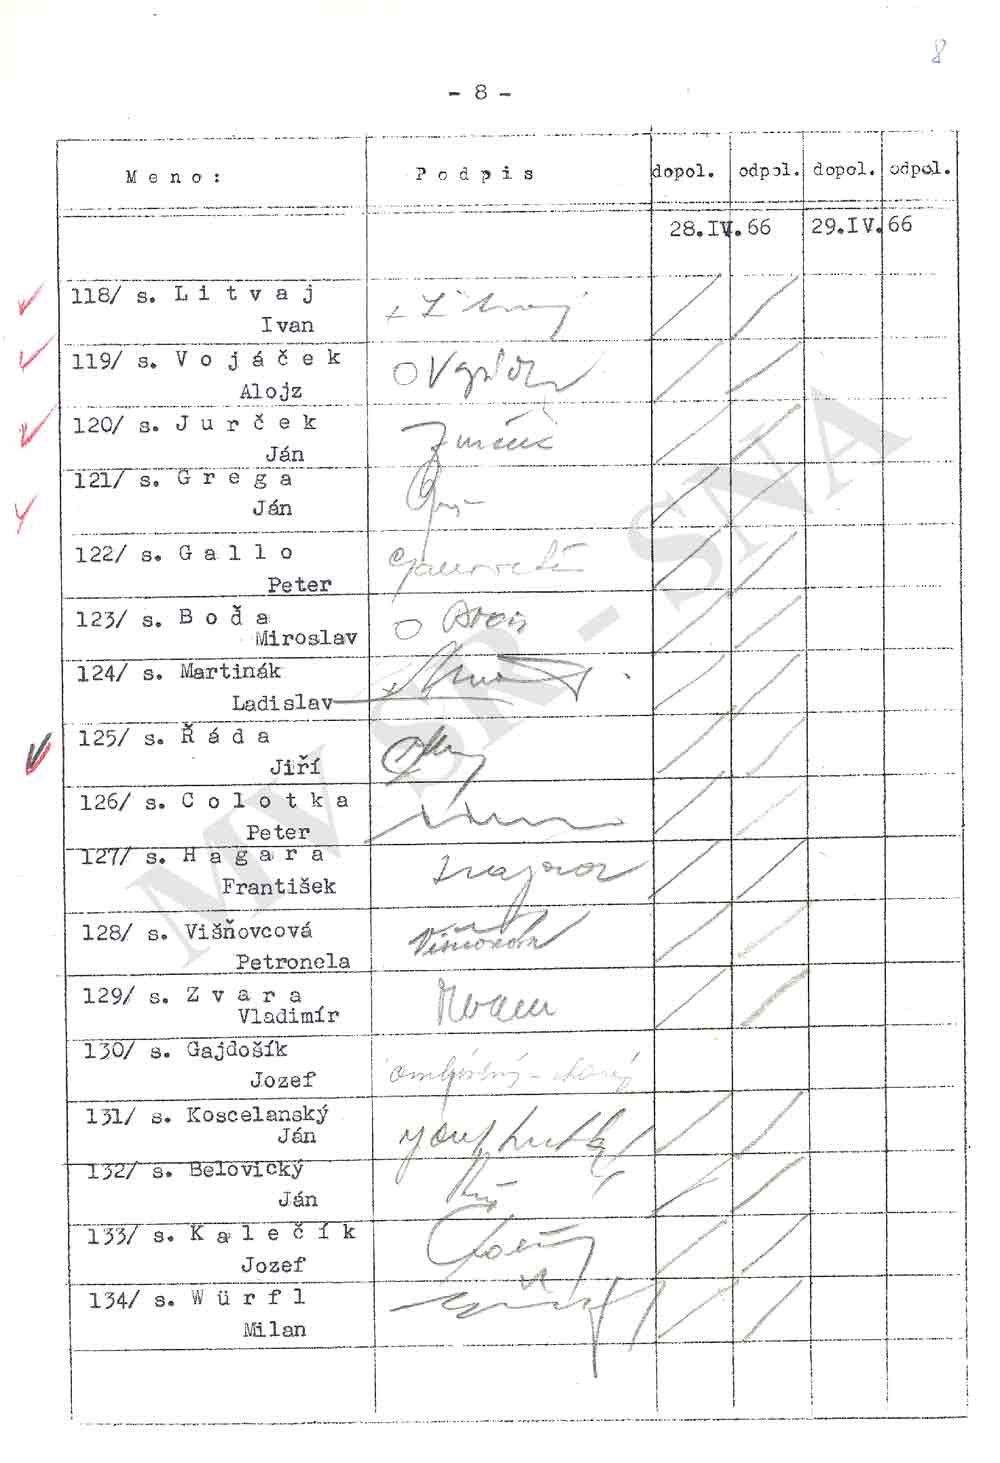 8
- 8 -
Meno: Podpis dopol. odpol. dopol. odpol.
28.IV.66 29.IV.66
118/ s. Litvaj
Ivan
119/ s. Vojáček
Alojz
120/ s. Jurček
Ján
121/ s. Grega
Ján
122/ s. Gallo
Peter
123/ s. Boďa
Miroslav
124/ s. Martinák
Ladislav
125/ s. Řáda
Jiří
126/ s. Colotka
Peter
127/ s. Hagara
František
128/ s. Višňovcová
Petronela
129/ s. Zvara
Vladimír
130/ s. Gajdošík
Jozef
131/ s. Koscelanský
Ján
132/ s. Belovický
Ján
133/ s. Kalečík
Jozef
134/ s. Würfl
Milan
MV SR - SNA